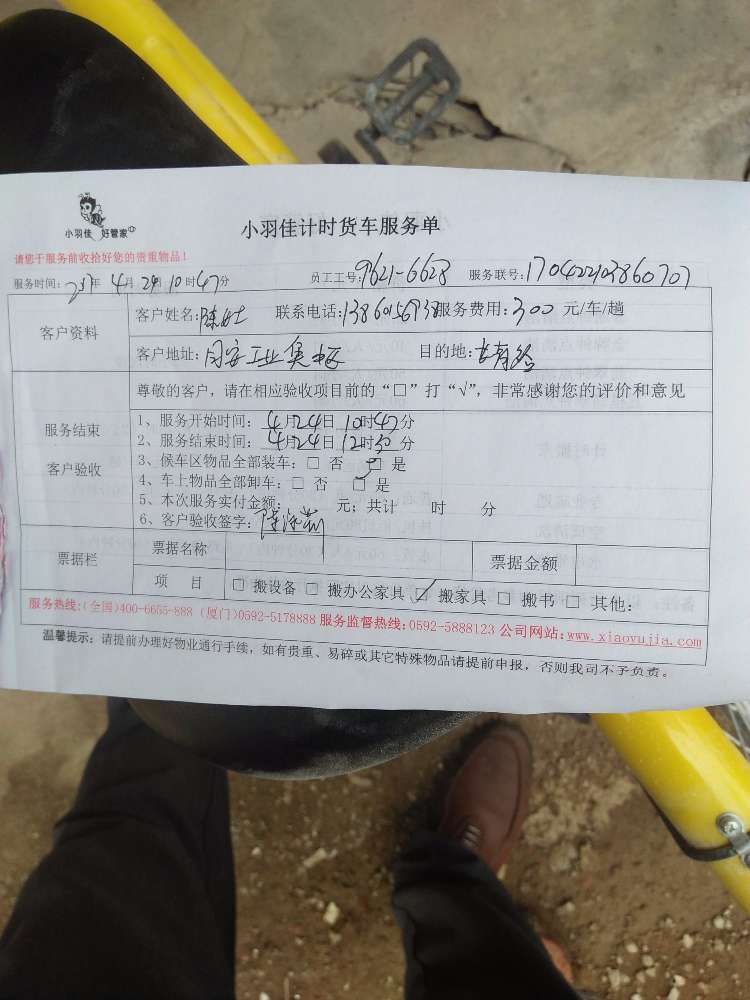 小羽佳 好管家
小羽佳计时货车服务单
请您于服务前收拾好您的贵重物品！
服务时间: 年 4月 2 日 10时47分 员工工号:9621-6628 服务联号:17042202860707
客户资料
客户姓名:陈女士 联系电话: 服务费用:300 元/车/趟
客户地址:同安工业集中区 目的地:
尊敬的客户，请在相应验收项目前的“□”打“√”，非常感谢您的评价和意见
服务结束
客户验收
1、服务开始时间: 4月24日 10时47分
2、服务结束时间: 4月24日 12时30分
3、候车区物品全部装车: □ 否 ☑ 是
4、车上物品全部卸车: □ 否 ☑ 是
5、本次服务实付金额: 元; 共计 时 分
6、客户验收签字: 陈
票据栏
票据名称 票据金额
项 目 □ 搬设备 □ 搬办公家具 ☑ 搬家具 □ 搬书 □ 其他:
服务热线:(全国)400-6655-888 (厦门)0592-5178888 服务监督热线:0592-5888123 公司网站:www.xiaoyujia.com
温馨提示: 请提前办理好物业通行手续，如有贵重、易碎或其它特殊物品请提前申报，否则我司不予负责。